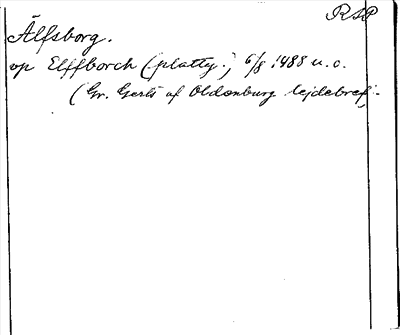 RAP
Älfsborg.
op Elffborch (plattty.) 6/8 1488 u. o.
(Gr. Gerts af Oldenburg lejdebref).